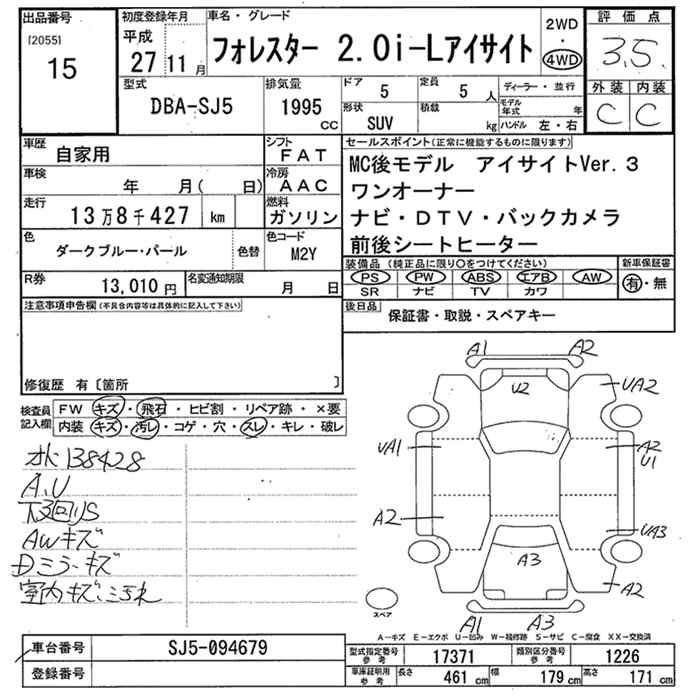 出品番号
[2055]
15
初度登録年月
平成
27 11 月
車名・グレード
フォレスター 2.0i-Lアイサイト
2WD
・
4WD
評価点
3.5
外装 内装
C C
型式
DBA-SJ5
排気量
1995
cc
ドア
5
定員
5 人
形状
SUV
積載
kg
ディーラー・並行
モデル年式 年
ハンドル 左・右
車歴
自家用
シフト
FAT
車検
年 月( 日)
冷房
AAC
走行
13万8千427 km
燃料
ガソリン
色
ダークブルー・パール
色替
色コード
M2Y
R券
13,010 円
名変通知期限
月 日
セールスポイント(正常に機能するものに限ります)
MC後モデル アイサイトVer.3
ワンオーナー
ナビ・DTV・バックカメラ
前後シートヒーター
装備品 (純正品に限り○をつけてください)
PS PW ABS エアB AW
SR ナビ TV カワ
新車保証書
有・無
後日品
保証書・取説・スペアキー
注意事項申告欄(不具合内容等は具体的に記入して下さい)
修復歴 有〔箇所 〕
検査員記入欄
FW キズ・飛石・ヒビ割・リペア跡・×要
内装 キズ・汚レ・コゲ・穴・スレ・キレ・破レ
138428
A,U
下回りS
AWキズ
Dミラーキズ
室内キズ、ヨゴレ
A1 A2
U2
UA2
UA1
A2
U1
A2
UA3
A3
A2
スペア
A1 A3
A-キズ E-エクボ U-凹み W-補修跡 S-サビ C-腐食 XX-交換済
車台番号
SJ5-094679
登録番号
型式指定番号 参考
17371
類別区分番号 参考
1226
車庫証明用 参考
長さ 461 cm 幅 179 cm 高さ 171 cm